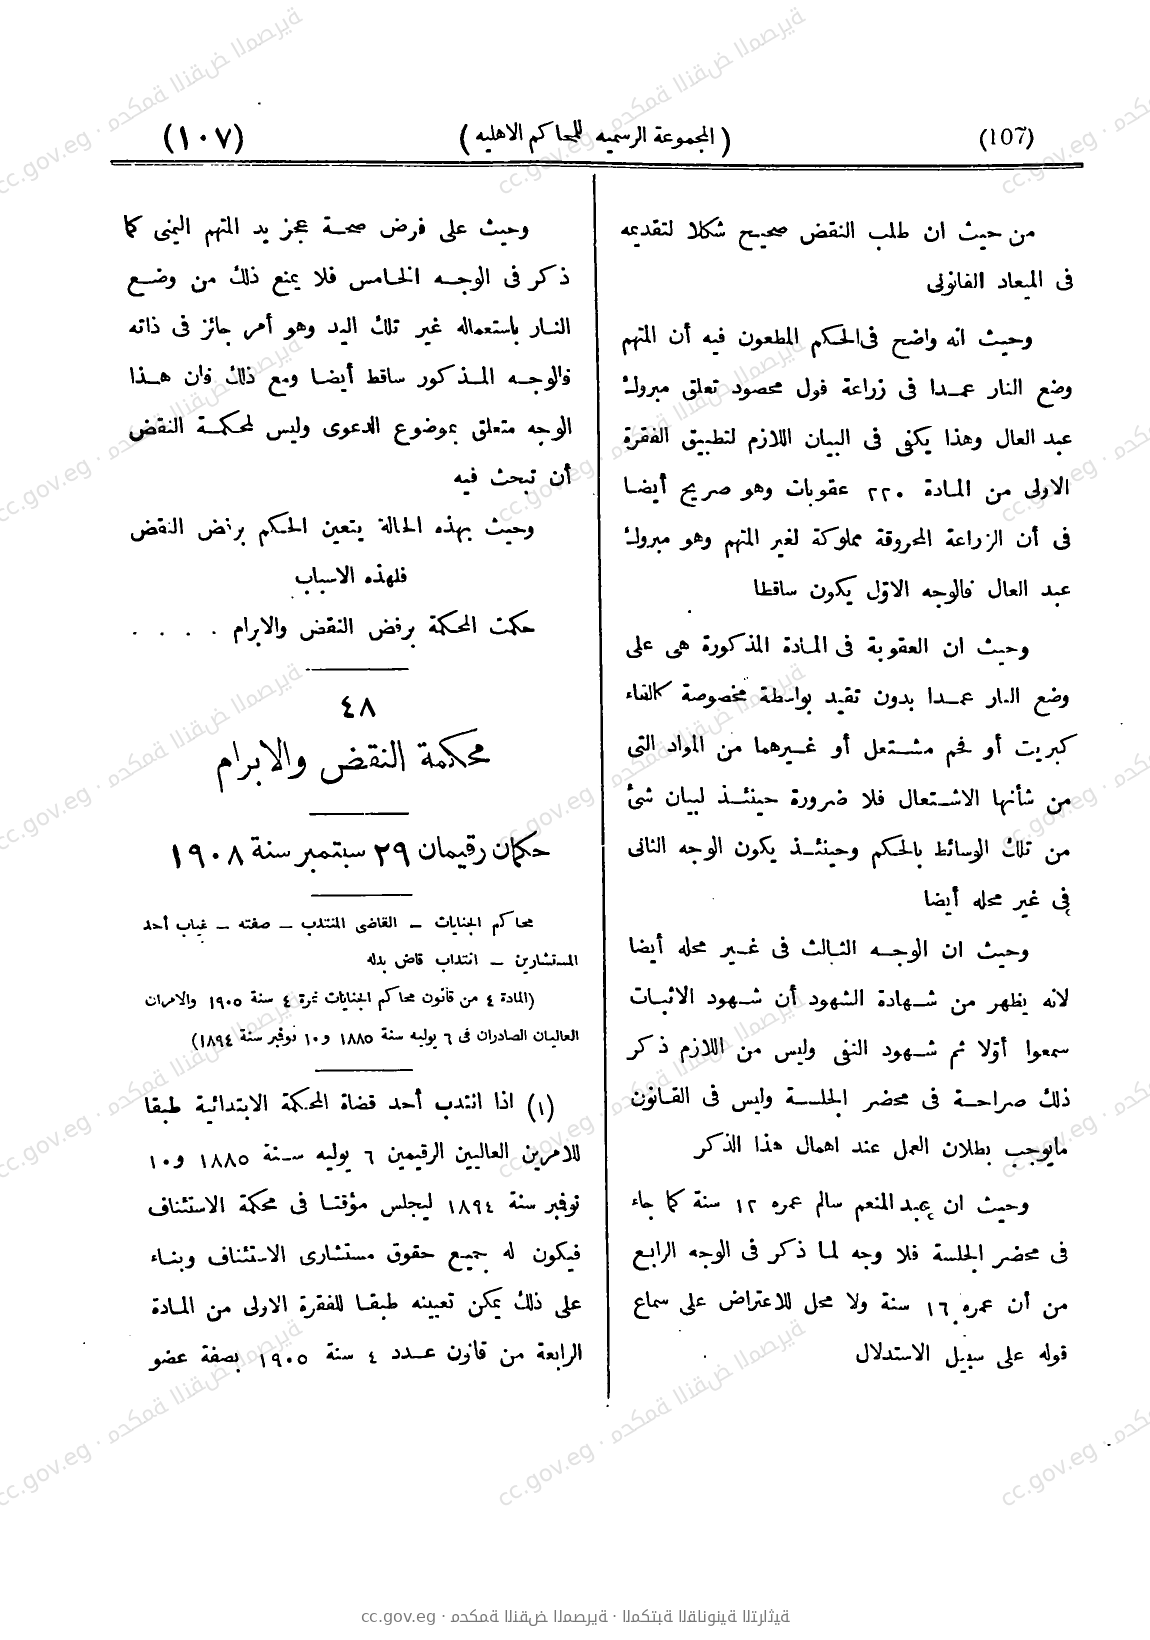 (107)
(المجموعة الرسميه للمحاكم الاهليه)
(١٠٧)
من حيث ان طلب النقض صحيح شكلا لتقديمه
فى الميعاد القانونى
وحيث انه واضح فى الحكم المطعون فيه أن المتهم
وضع النار عمدا فى زراعة فول محصود تعلق مبروك
عبد العال وهذا يكفى فى البيان اللازم لتطبيق الفقرة
الاولى من المادة ٢٢٠ عقوبات وهو صريح أيضا
فى أن الزراعة المحروقة مملوكة لغير المتهم وهو مبروك
عبد العال فالوجه الاوّل يكون ساقطا
وحيث ان العقوبة فى المادة المذكورة هى على
وضع النار عمدا بدون تقيد بواسطة مخصوصة كالقاء
كبريت أو فحم مشتعل أو غيرهما من المواد التى
من شأنها الاشتعال فلا ضرورة حينئذ لبيان شئ
من تلك الوسائط بالحكم وحينئذ يكون الوجه الثانى
فى غير محله أيضا
وحيث ان الوجه الثالث فى غير محله أيضا
لانه يظهر من شهادة الشهود أن شهود الاثبات
سمعوا أوّلا ثم شهود النفى وليس من اللازم ذكر
ذلك صراحة فى محضر الجلسة وليس فى القانون
مايوجب بطلان العمل عند اهمال هذا الذكر
وحيث ان عبد المنعم سالم عمره ١٢ سنة كما جاء
فى محضر الجلسة فلا وجه لما ذكر فى الوجه الرابع
من أن عمره ١٦ سنة ولا محل للاعتراض على سماع
قوله على سبيل الاستدلال
وحيث على فرض صحة عجز يد المتهم اليمنى كما
ذكر فى الوجه الخامس فلا يمنع ذلك من وضع
النار باستعماله غير تلك اليد وهو أمر جائز فى ذاته
فالوجه المذكور ساقط أيضا ومع ذلك فان هذا
الوجه متعلق بموضوع الدعوى وليس لمحكمة النقض
أن تبحث فيه
وحيث بهذه الحالة يتعين الحكم برفض النقض
فلهذه الاسباب
حكمت المحكمة برفض النقض والابرام . . . .
٤٨
محكمة النقض والابرام
حكمان رقيمان ٢٩ سبتمبر سنة ١٩٠٨
محاكم الجنايات – القاضى المنتدب – صفته – غياب أحد
المستشارين – انتداب قاض بدله
(المادة ٤ من قانون محاكم الجنايات نمرة ٤ سنة ١٩٠٥ والامران
العاليان الصادران فى ٦ يوليه سنة ١٨٨٥ و١٠ نوفمبر سنة ١٨٩٤)
(١) اذا انتدب أحد قضاة المحكمة الابتدائية طبقا
للامرين العاليين الرقيمين ٦ يوليه سنة ١٨٨٥ و١٠
نوفمبر سنة ١٨٩٤ ليجلس مؤقتا فى محكمة الاستئناف
فيكون له جميع حقوق مستشارى الاستئناف وبناء
على ذلك يمكن تعيينه طبقا للفقرة الاولى من المادة
الرابعة من قانون عدد ٤ سنة ١٩٠٥ بصفة عضو
cc.gov.eg · محكمة النقض المصرية · المكتبة القانونية التراثية